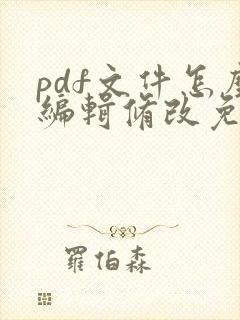 pdf文件怎
编辑修改免
羅伯森